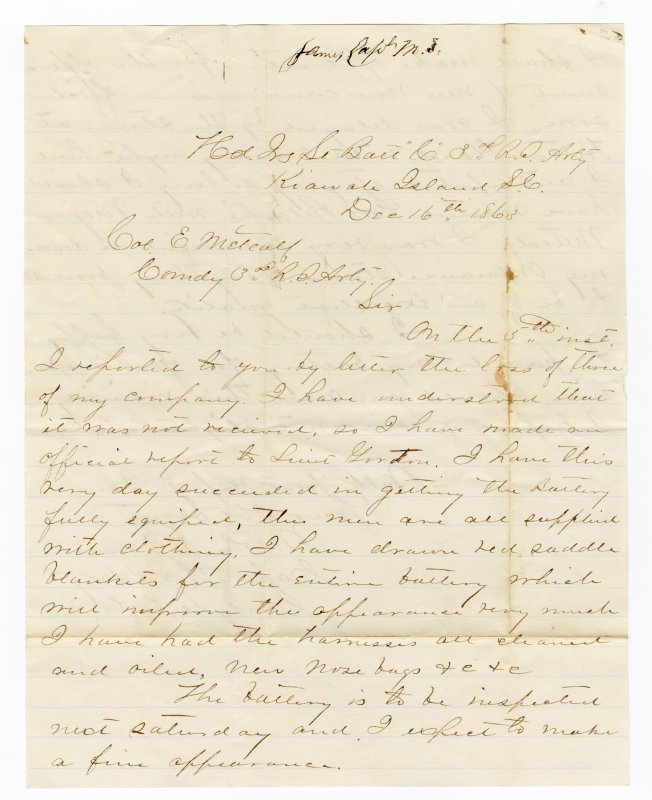 James, Capt. M. S.
Hd. Qrs Lt Batt "C" 3d R. I. Arty
Kiawah Island S.C.
Dec 16th 1863
Col E Metcalf
Comdg 3d R. I. Arty.
Sir
On the 5th inst.
I reported to you by letter the loss of three
of my company. I have understood that
it was not recieved, so I have made an
official report to Lieut Gordon. I have this
very day succeeded in getting the battery
fully equiped, the men are all supplied
with clothing. I have drawn red saddle
blankets for the entire battery which
will improve the appearance very much
I have had the harnesses all cleaned
and oiled, new nose bags &c &c
The battery is to be inspected
next saturday and I expect to make
a fine appearance.